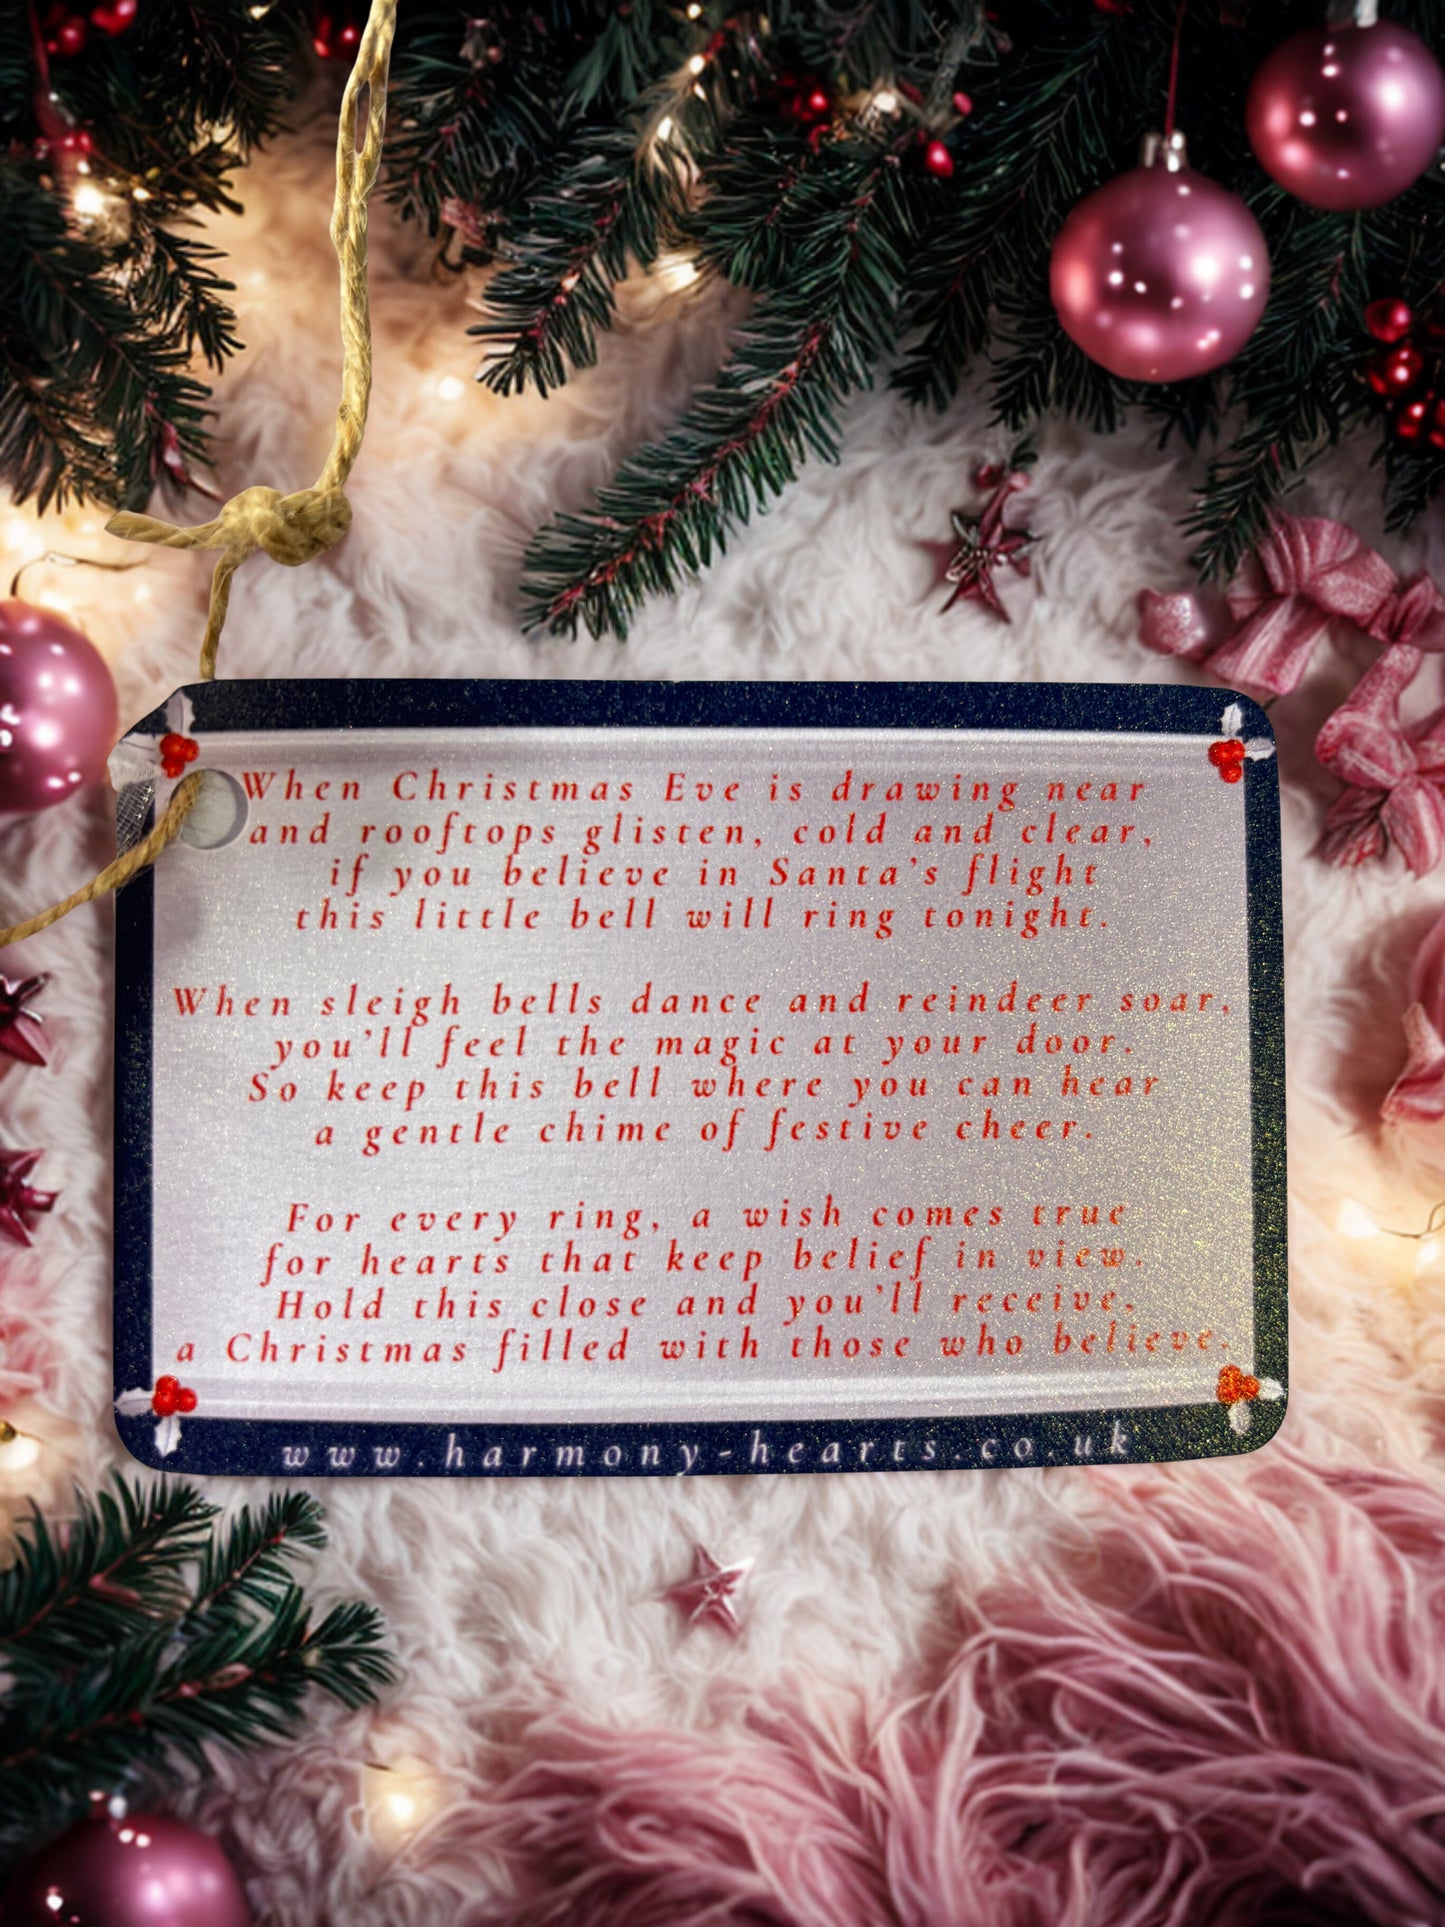 When Christmas Eve is drawing near
and rooftops glisten, cold and clear,
if you believe in Santa's flight
this little bell will ring tonight.
When sleigh bells dance and reindeer soar,
you'll feel the magic at your door.
So keep this bell where you can hear
a gentle chime of festive cheer.
For every ring, a wish comes true
for hearts that keep belief in view.
Hold this close and you'll receive,
a Christmas filled with those who believe.
www.harmony-hearts.co.uk